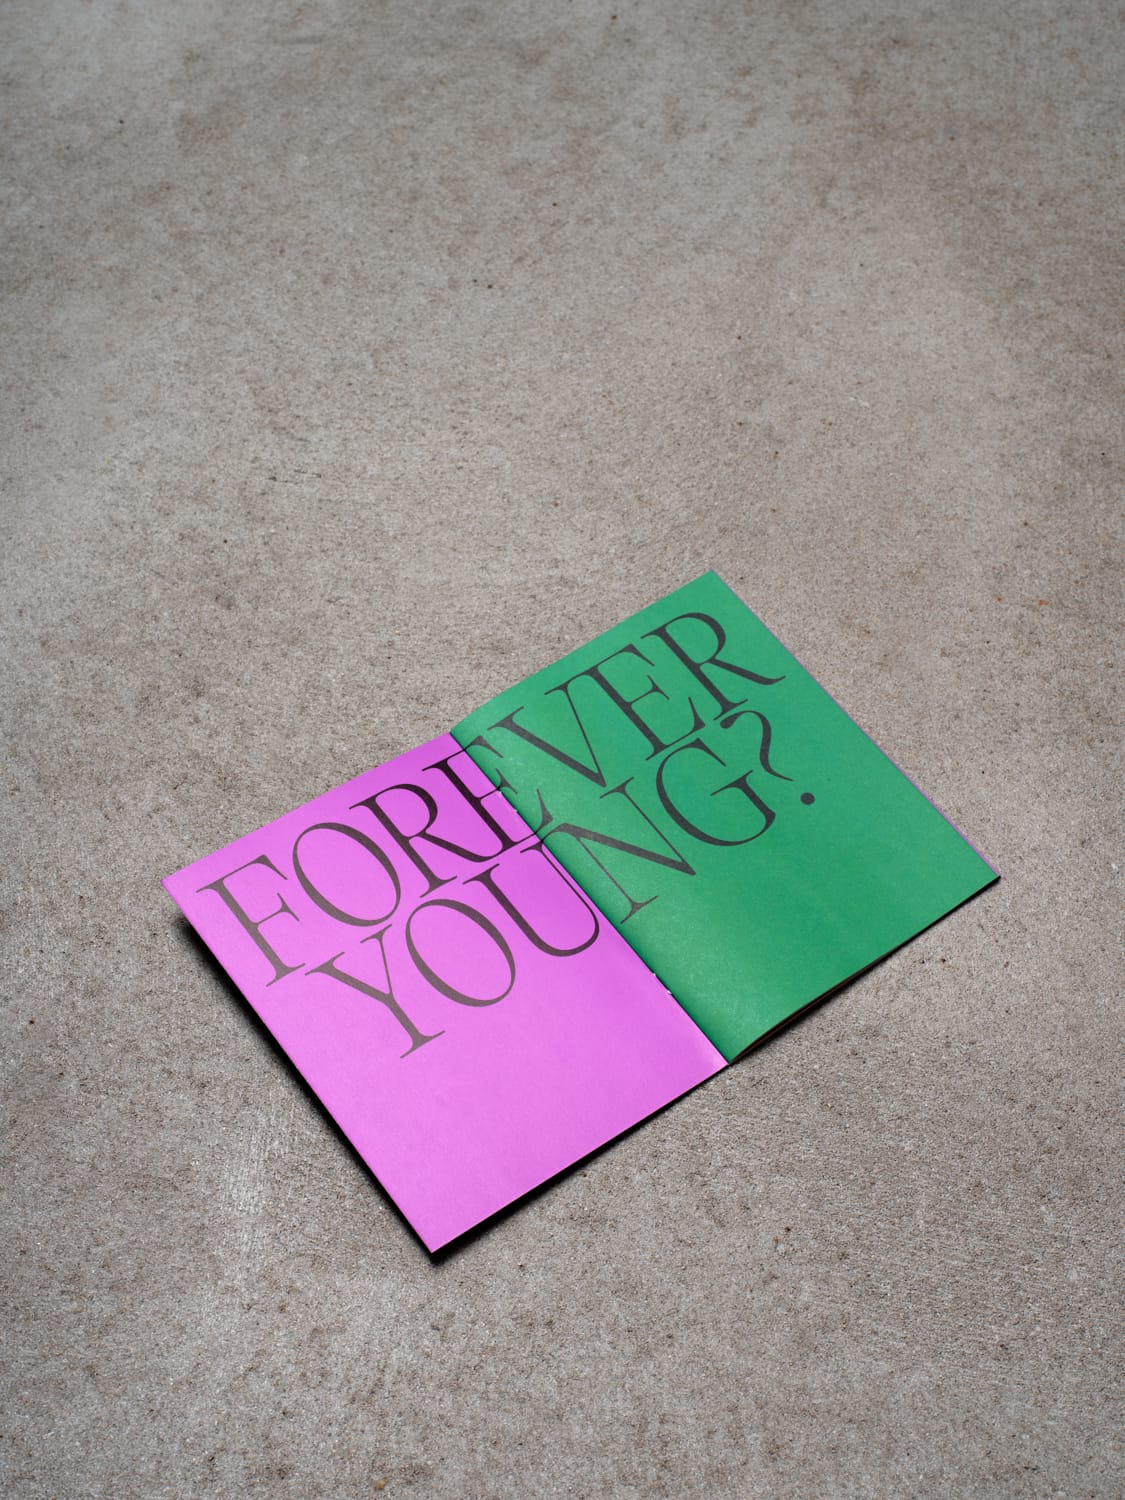 FOREVER
YOUNG?